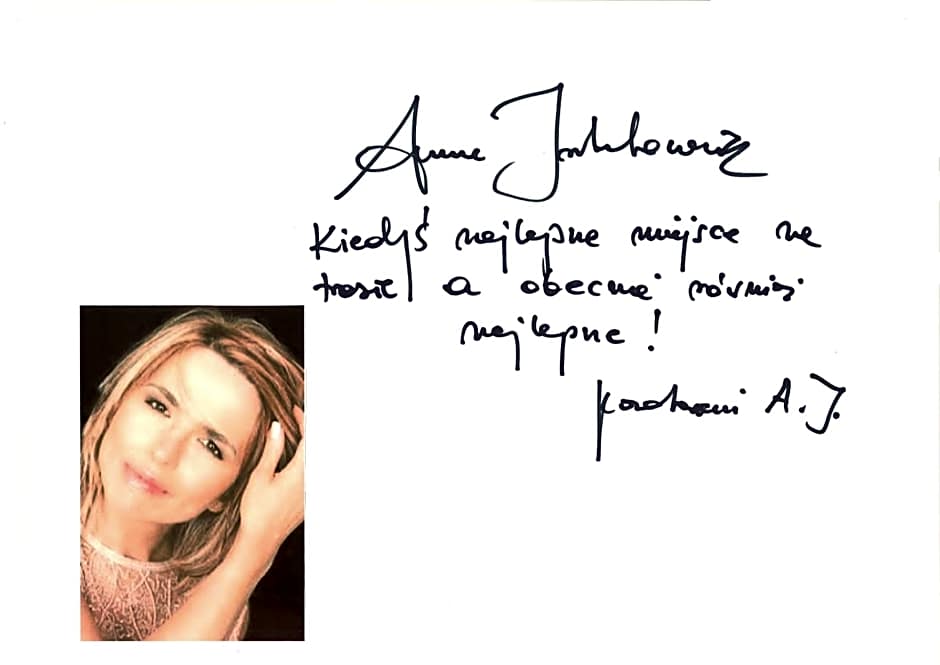 Anna
Kiedyś najlepsze miejsce na
trasie, a obecnie również
najlepsze!
Pozdrawiam A.J.